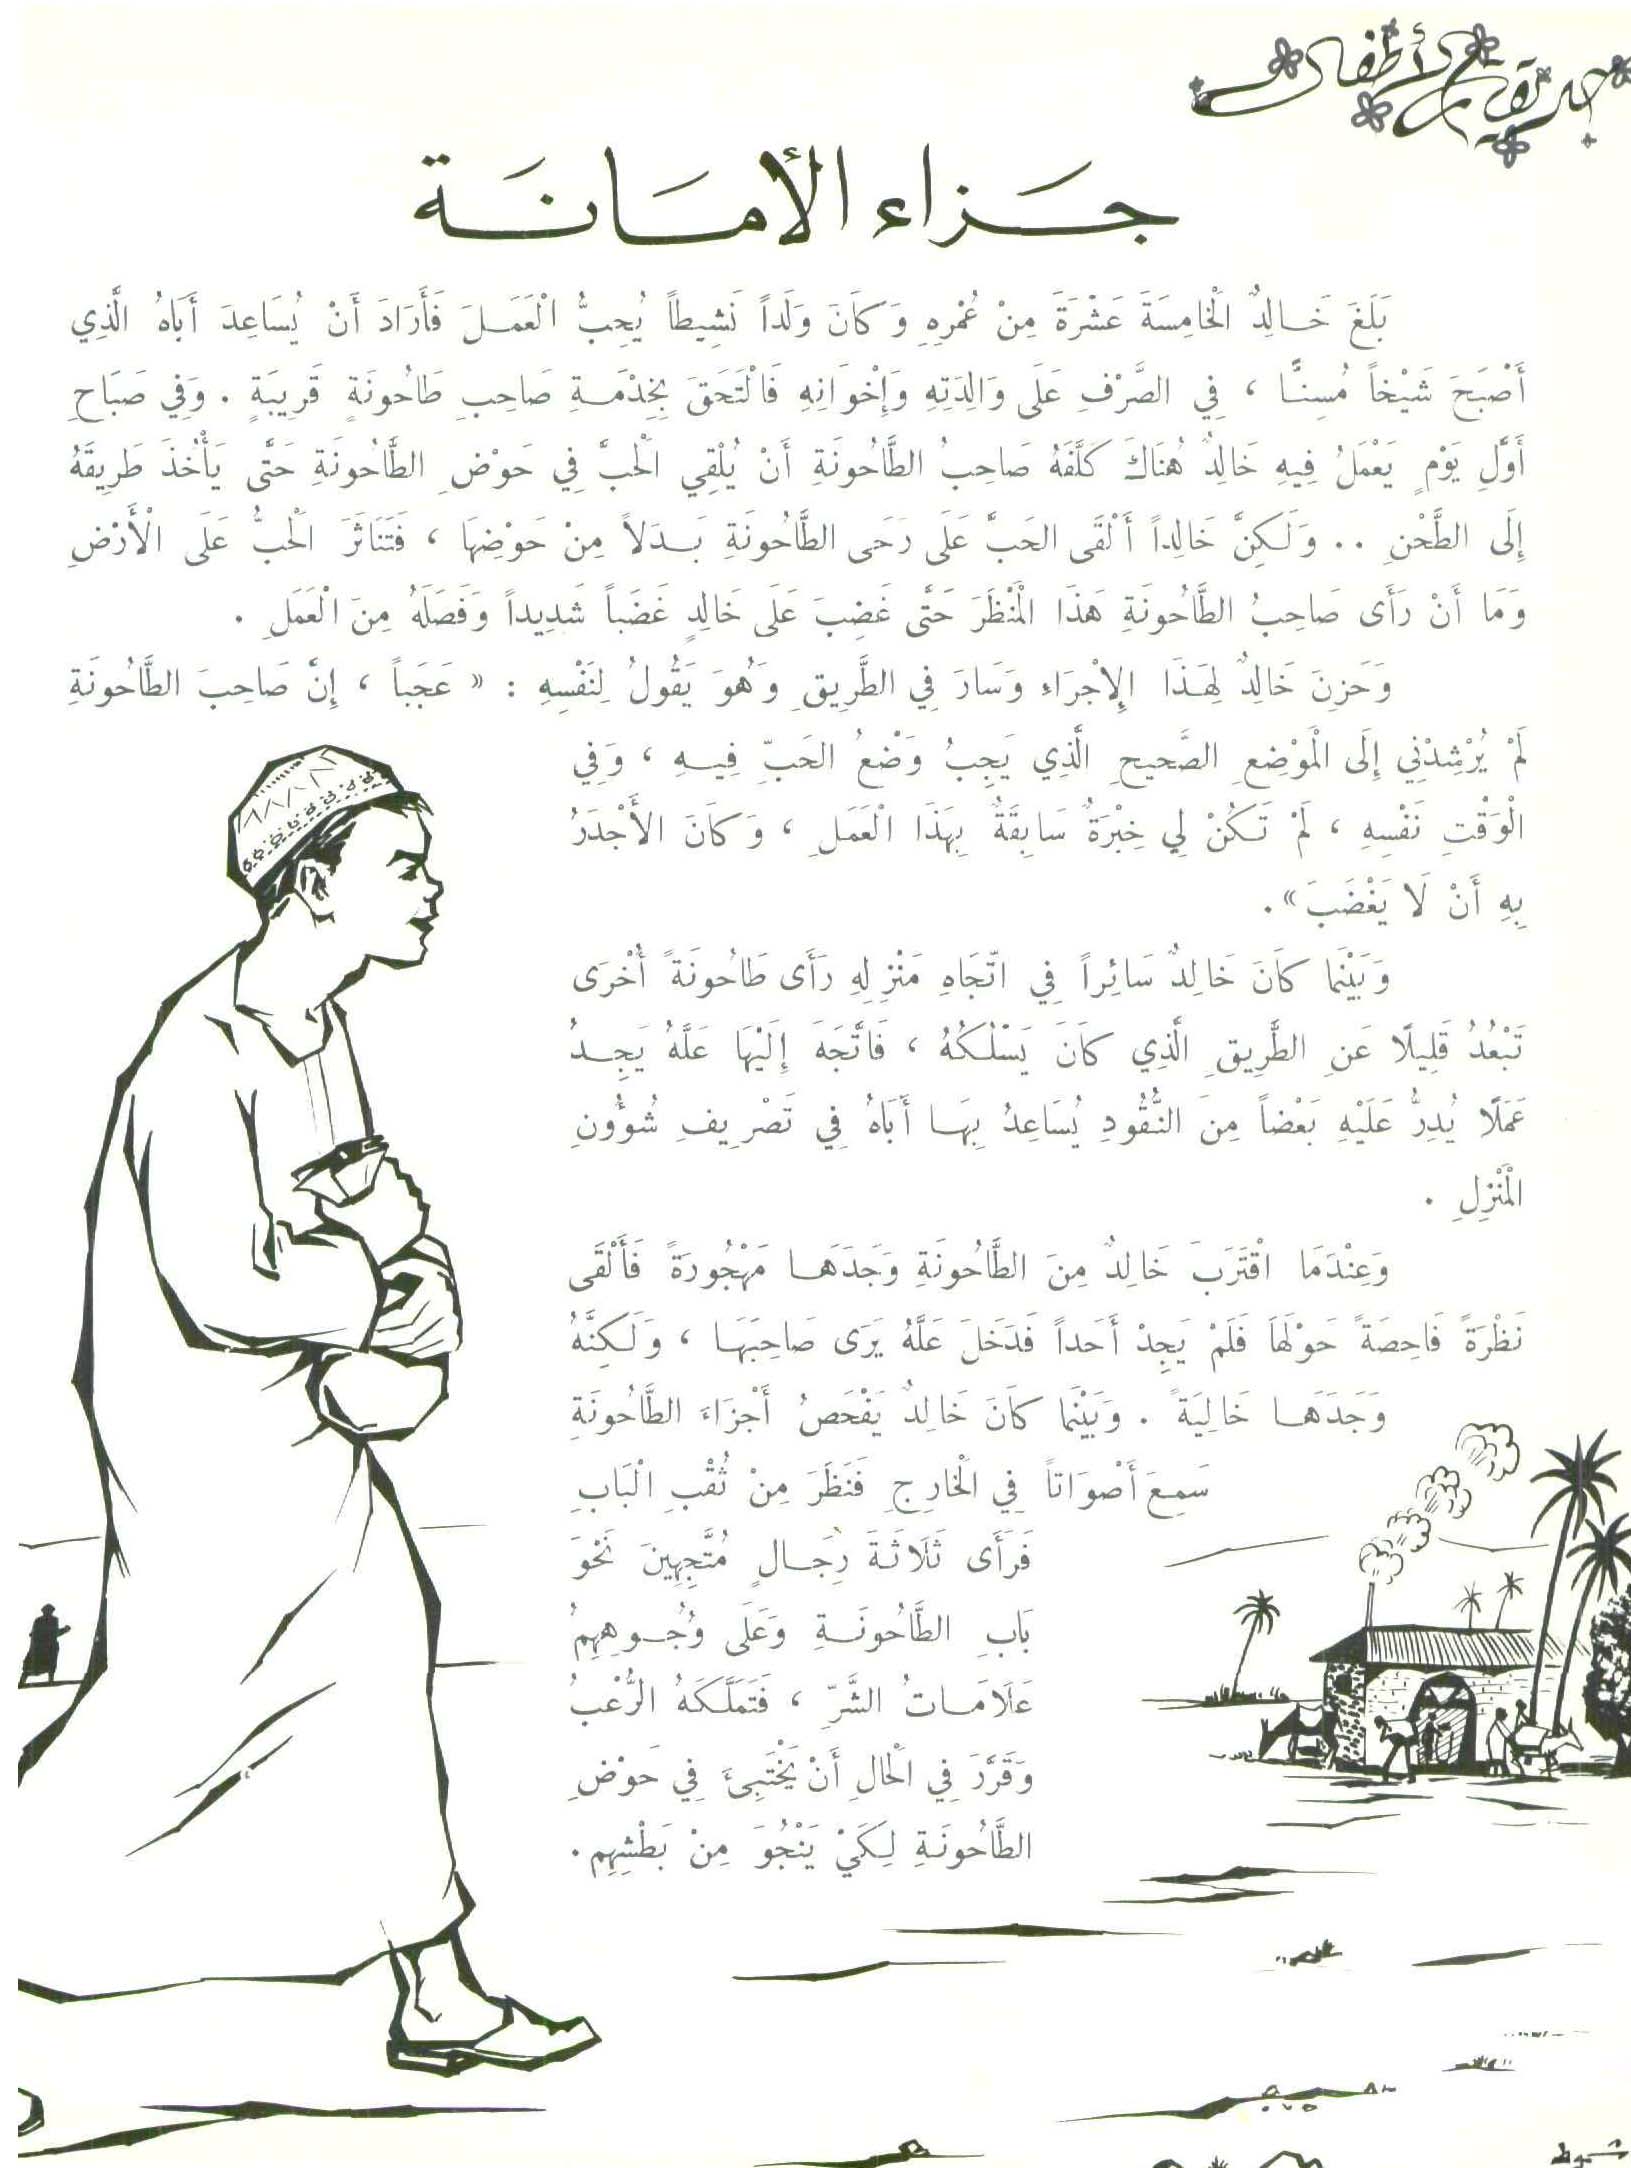 حديقة الأطفال
جَزاء الأمَانَة
بَلَغَ خَالِدٌ الْخَامِسَةَ عَشْرَةَ مِنْ عُمْرِهِ وَكَانَ وَلَداً نَشِيطاً يُحِبُّ الْعَمَلَ فَأَرَادَ أَنْ يُسَاعِدَ أَبَاهُ الَّذِي
أَصْبَحَ شَيْخاً مُسِنًّا ، فِي الصَّرْفِ عَلَى وَالِدَتِهِ وَإِخْوَانِهِ فَالْتَحَقَ بِخِدْمَةِ صَاحِبِ طَاحُونَةٍ قَرِيبَةٍ . وَفِي صَبَاحِ
أَوَّلِ يَوْمٍ يَعْمَلُ فِيهِ خَالِدٌ هُنَاكَ كَلَّفَهُ صَاحِبُ الطَّاحُونَةِ أَنْ يُلْقِي الْحَبَّ فِي حَوْضِ الطَّاحُونَةِ حَتَّى يَأْخُذَ طَرِيقَهُ
إِلَى الطَّحْنِ .. وَلَكِنَّ خَالِداً أَلْقَى الحَبَّ عَلَى رَحَى الطَّاحُونَةِ بَدَلاً مِنْ حَوْضِهَا ، فَتَنَاثَرَ الْحَبُّ عَلَى الْأَرْضِ
وَمَا أَنْ رَأَى صَاحِبُ الطَّاحُونَةِ هَذَا الْمَنْظَرَ حَتَّى غَضِبَ عَلَى خَالِدٍ غَضَباً شَدِيداً وَفَصَلَهُ مِنَ الْعَمَلِ .
وَحَزِنَ خَالِدٌ لِهَذَا الإِجْرَاءِ وَسَارَ فِي الطَّرِيقِ وَهُوَ يَقُولُ لِنَفْسِهِ : « عَجَباً ، إِنَّ صَاحِبَ الطَّاحُونَةِ
لَمْ يُرْشِدْنِي إِلَى الْمَوْضِعِ الصَّحِيحِ الَّذِي يَجِبُ وَضْعُ الحَبِّ فِيهِ ، وَفِي
الْوَقْتِ نَفْسِهِ ، لَمْ تَكُنْ لِي خِبْرَةٌ سَابِقَةٌ بِهَذَا الْعَمَلِ ، وَكَانَ الأَجْدَرُ
بِهِ أَنْ لَا يَغْضَبَ».
وَبَيْنَمَا كَانَ خَالِدٌ سَائِراً فِي اتِّجَاهِ مَنْزِلِهِ رَأَى طَاحُونَةً أُخْرَى
تَبْعُدُ قَلِيلًا عَنِ الطَّرِيقِ الَّذِي كَانَ يَسْلُكُهُ ، فَاتَّجَهَ إِلَيْهَا عَلَّهُ يَجِدُ
عَمَلًا يُدِرُّ عَلَيْهِ بَعْضاً مِنَ النُّقُودِ يُسَاعِدُ بِهَا أَبَاهُ فِي تَصْرِيفِ شُؤُونِ
الْمَنْزِلِ .
وَعِنْدَمَا اقْتَرَبَ خَالِدٌ مِنَ الطَّاحُونَةِ وَجَدَهَا مَهْجُورَةً فَأَلْقَى
نَظْرَةً فَاحِصَةً حَوْلَهَا فَلَمْ يَجِدْ أَحَداً فَدَخَلَ عَلَّهُ يَرَى صَاحِبَهَا ، وَلَكِنَّهُ
وَجَدَهَا خَالِيَةً . وَبَيْنَمَا كَانَ خَالِدٌ يَفْحَصُ أَجْزَاءَ الطَّاحُونَةِ
سَمِعَ أَصْوَاتاً فِي الْخَارِجِ فَنَظَرَ مِنْ ثُقْبِ الْبَابِ
فَرَأَى ثَلَاثَةَ رِجَالٍ مُتَّجِهِينَ نَحْوَ
بَابِ الطَّاحُونَةِ وَعَلَى وُجُوهِهِمُ
عَلَامَاتُ الشَّرِّ ، فَتَمَلَّكَهُ الرُّعْبُ
وَقَرَّرَ فِي الْحَالِ أَنْ يَخْتَبِئَ فِي حَوْضِ
الطَّاحُونَةِ لِكَيْ يَنْجُوَ مِنْ بَطْشِهِمْ.